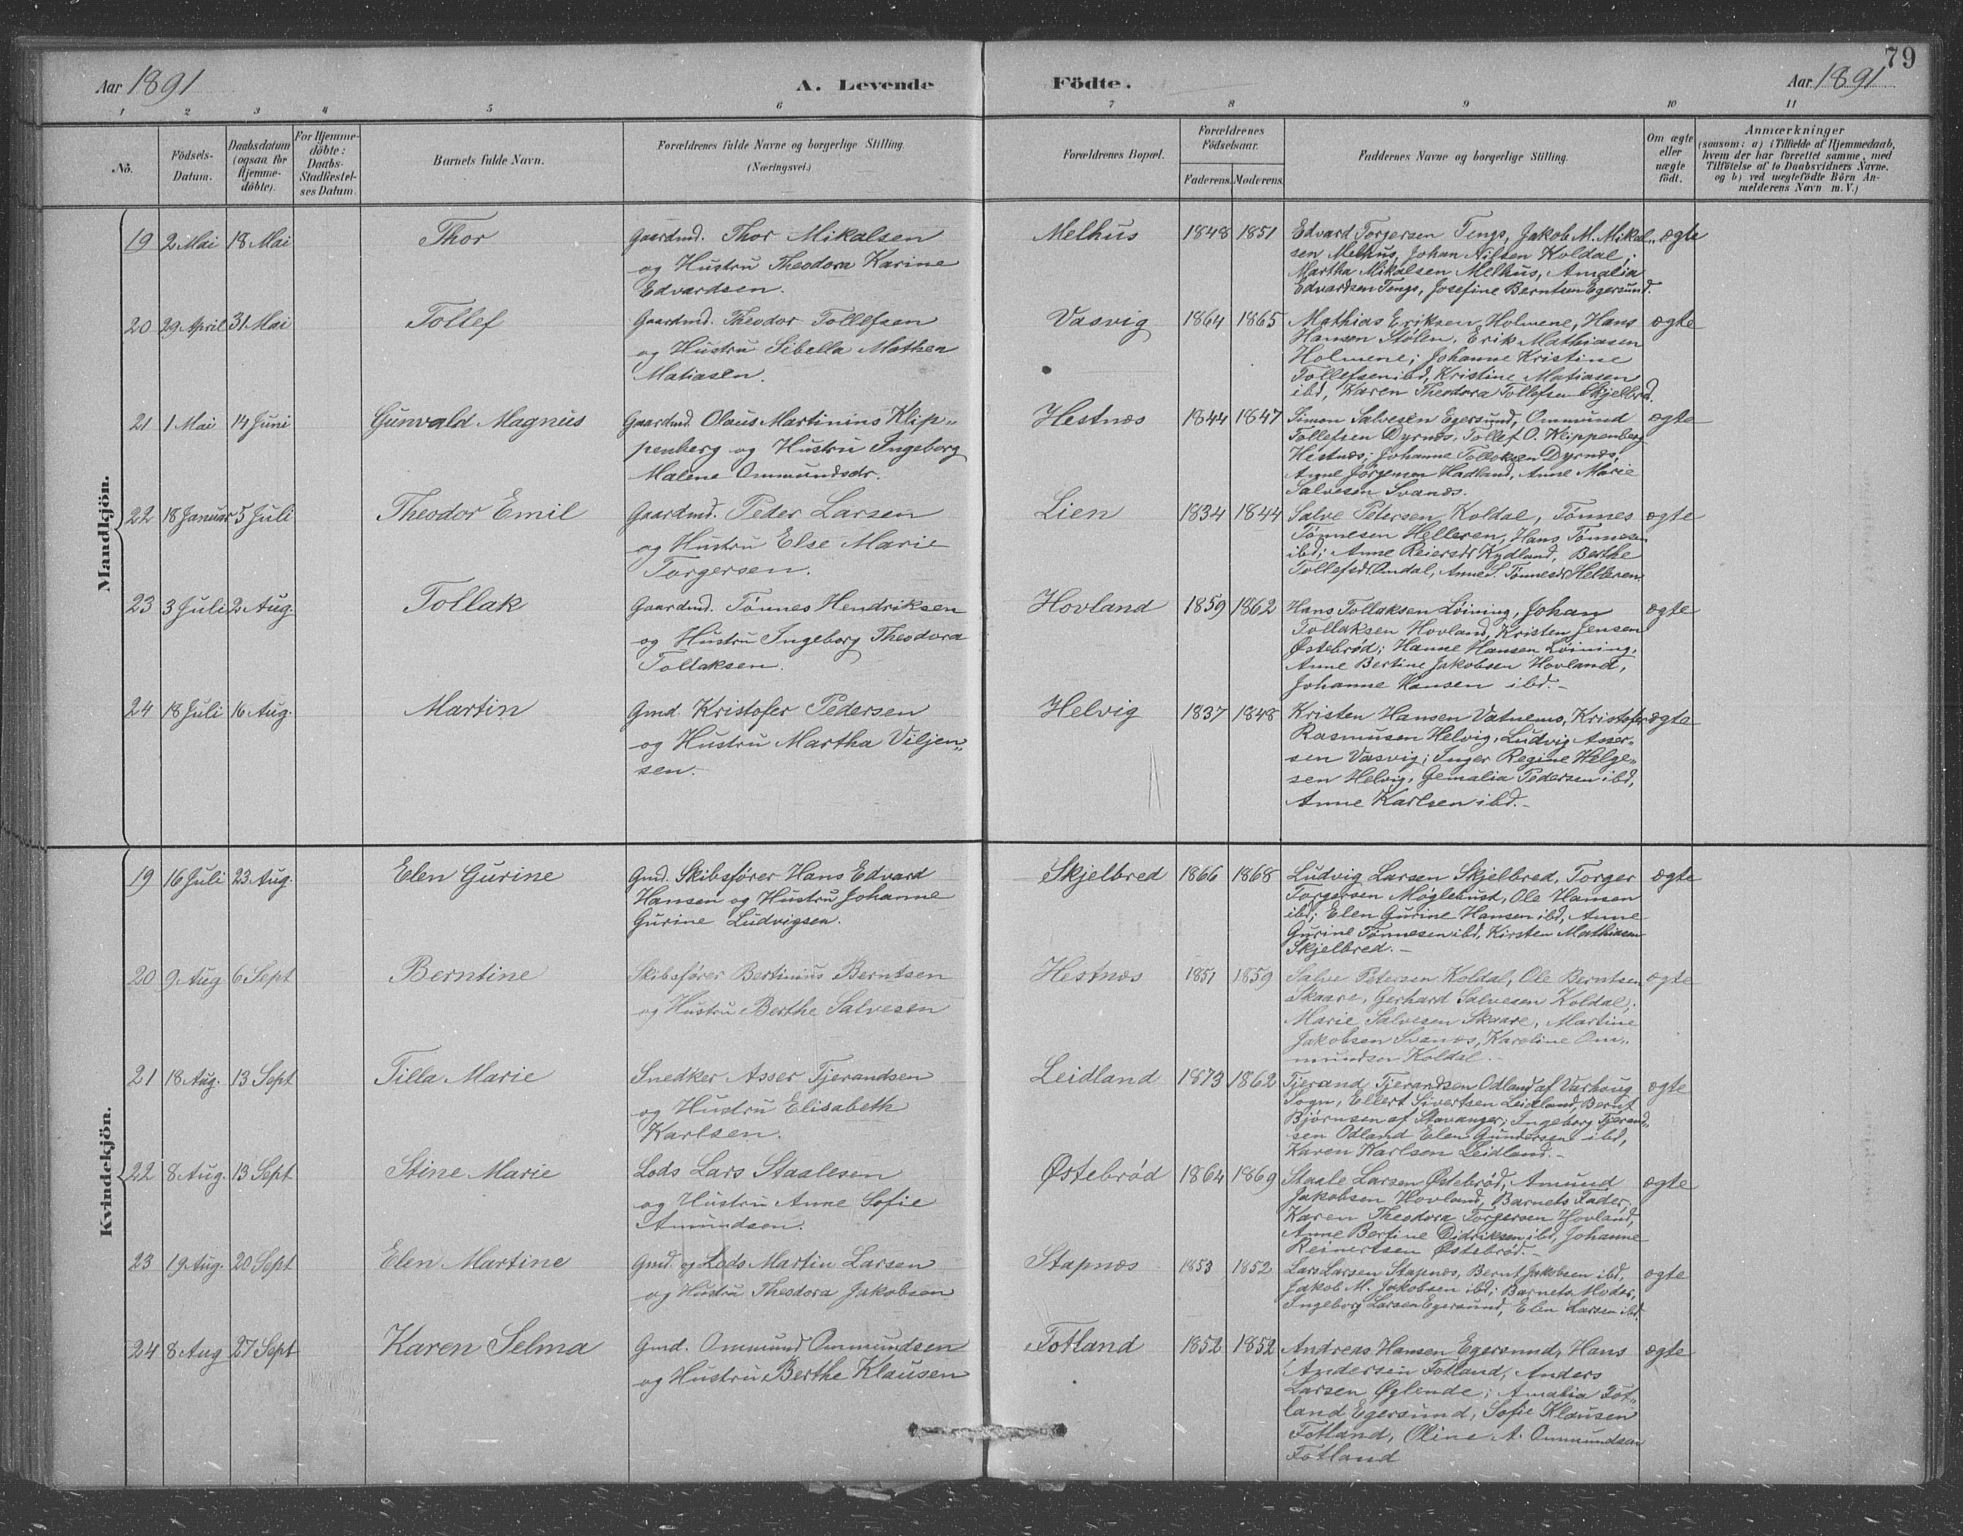 79
Aar 1891 A. Levende Födte. Aar 1891
1 2 3 4 5 6 7 8 9 10 11
No. Födsels-Datum. Daabsdatum (ogsaa for Hjemmedöbte). For Hjemmedöbte: Daabs-Stadfæstelses Datum. Barnets fulde Navn. Forældrenes fulde Navne og borgerlige Stilling. (Næringsvei.) Forældrenes Bopæl. Forældrenes Födselsaar. Faderens. Moderens. Faddernes Navne og borgerlige Stilling. Om ægte eller uægte födt. Anmærkninger (saasom: a) i Tilfælde af Hjemmedaab, hvem der har forrettet samme, med Tilföielse af to Daabsvidners Navne. og b) ved uægtefödte Börn Anmelderens Navn m. V.)
Mandkjön.
19 2 Mai 18 Mai Thor Gaardmd. Thor Mikalsen Melhus 1848 1851 Edvard Torgersen Tengs, Jakob M. Mikal- ægte
og Hustru Theodora Karine sen Melhus, Johan Nilsen Koldal;
Edvardsen. Martha Mikalsen Melhus, Amalia
Edvardsen Tengs, Josefine Berntsen Egersund.
20 29 April 31 Mai Tollef Gaardmd. Theodor Tollefsen Vasvig 1864 1865 Mathias Eriksen Holmene, Hans ægte
og Hustru Sibella Mathea Hansen Stølen, Erik Mathiasen
Matiasen. Holmene; Johanne Kristine
Tollefsen ibd, Kristine Matiasen
ibd, Karen Theodora Tollefsen Skjelbrd.
21 1 Mai 14 Juni Gunvald Magnus Gaardmd. Olaus Martinius Klip- Hestnæs 1844 1847 Simon Salvesen Egersund, Ommund ægte
penberg og Hustru Ingeborg Tollefsen Dyrnæs, Tollef O. Klippenberg
Malene Ommundsdr. Hestnæs; Johanne Tollefsen Dyrnæs,
Anne Jørgensen Hadland, Anne Marie
Salvesen Svanæs.
22 18 Januar 5 Juli Theodor Emil Gaardmd. Peder Larsen Lien 1834 1844 Salve Petersen Koldal, Tønnes ægte
og Hustru Else Marie Tønnesen Helleren, Hans Tønnesen
Torgersen. ibd; Anne Reiersdr Kydland, Berthe
Tollefsdr Omdal, Anne S. Tønnesdr Helleren
23 3 Juli 2 Aug. Tollak Gaardmd. Tønnes Hendriksen Hovland 1859 1862 Hans Tollaksen Løining, Johan ægte
og Hustru Ingeborg Theodora Tollaksen Hovland, Kristen Jensen
Tollaksen. Østebrød; Hanne Hansen Løining,
Anne Bertine Jakobsen Hovland,
Johanne Hansen ibd.-
24 18 Juli 16 Aug. Martin Gmd. Kristofer Pedersen Helvig 1837 1848 Kristen Hansen Vatnems, Kristofer ægte
og Hustru Martha Viljem- Rasmusen Helvig, Ludvig Asser-
sen.- sen Vasvig; Inger Regine Helge-
sen Helvig, Gemalia Pedersen ibd,
Anne Karlsen ibd.-
Kvindekjön.
19 16 Juli 23 Aug. Elen Gurine Gmd. Skibsfører Hans Edvard Skjelbred 1866 1868 Ludvig Larsen Skjelbred, Torger ægte
Hansen og Hustru Johanne Torgersen Møglebust, Ole Hansen
Gurine Ludvigsen. ibd; Elen Gurine Hansen ibd, Anne
Gurine Tønnesen ibd, Kirsten Mathiasen
Skjelbred.-
20 9 Aug 6 Sept Berntine Skibsfører Bertinius Berntsen Hestnæs 1851 1859 Salve Petersen Koldal, Ole Berntsen ægte
og Hustru Berthe Salvesen Skaare, Gerhard Salvesen Koldal;
Marie Salvesen Skaare, Martine
Jakobsen Svanæs, Karoline Om-
mundsen Koldal.-
21 18 Aug. 13 Sept Tilla Marie Snedker Asser Tjerandsen Leidland 1873 1862 Tjerand Tjerandsen Odland af Varhaug ægte
og Hustru Elisabeth Sogn, Ellert Sivertsen Leidland, Bernt
Karlsen. Bjørnsen af Stavanger; Ingeborg Tjerand-
sen Odland Elen Gundersen ibd,
Karen Karlsen Leidland.-
22 8 Aug. 13 Sept Stine Marie Lods Lars Staalesen Østebrød 1864 1869 Staale Larsen Østebrød, Amund ægte
og Hustru Anne Sofie Jakobsen Hovland, Barnets Fader,
Amundsen. Karen Theodora Torgersen Hovland,
Anne Bertine Didriksen ibd, Johanne
Reinertsen Østebrød.-
23 19 Aug. 20 Sept Elen Martine Gmd. og Lods Martin Larsen Stapnæs 1853 1852 Lars Larsen Stapnæs, Bernt Jakobsen ibd, ægte
og Hustru Theodora Jakobsen Jakob M. Jakobsen ibd; Barnets Moder,
Ingeborg Larsen Egersund, Elen Larsen ibd.
24 8 Aug 27 Sept Karen Selma Gmd. Ommund Ommundsen Fotland 1852 1852 Andreas Hansen Egersund, Hans ægte
og Hustru Berthe Klausen Andersen Fotland, Anders
Larsen Øglende; Amalia Fot-
land Egersund, Sofie Klausen
Fotland, Oline A. Ommundsen
Fotland